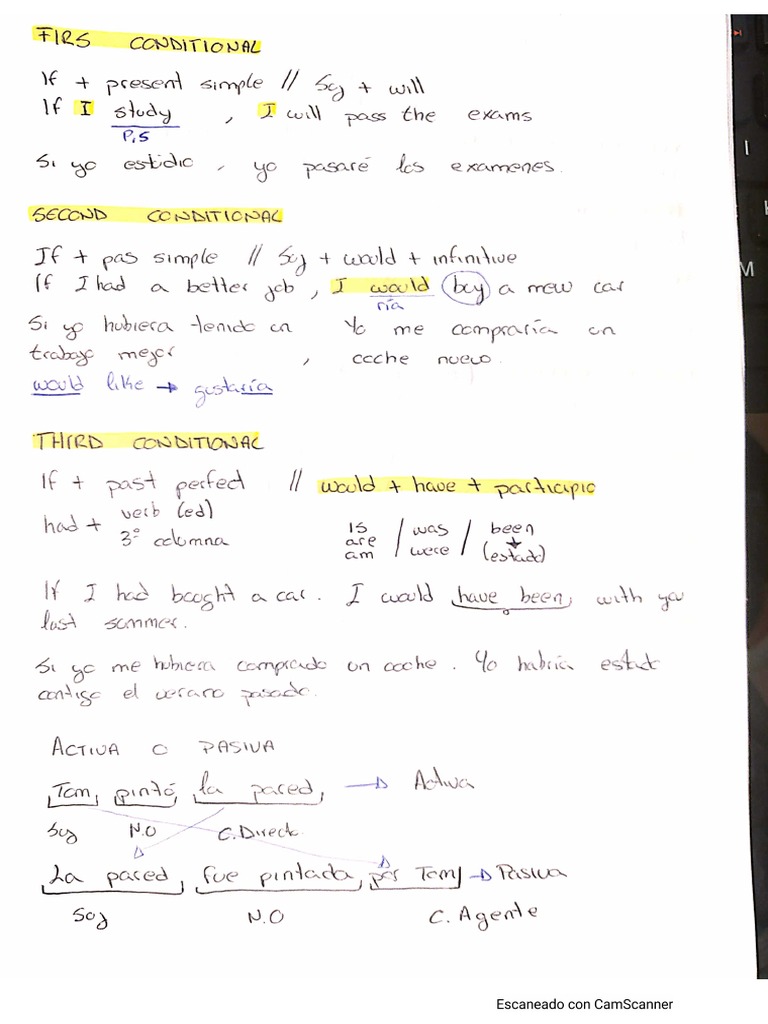 FIRS CONDITIONAL
If + present simple // Suj + will
If I study , I will pass the exams
P.S
Si yo estidio , yo pasaré los examenes.
SECOND CONDITIONAL
If + pas simple // Suj + would + infinitive
If I had a better job , I would buy a new car
ría
Si yo hubiera tenido un Yo me compraría un
trabajo mejor , coche nuevo.
would like → gustaría
THIRD CONDITIONAL
If + past perfect // would + have + participio
had + verb (ed)
3º columna
is / was / been
are / were / (estado)
am
If I had bought a car. I would have been with you
last summer.
Si yo me hubiera comprado un coche. Yo habría estado
contigo el verano pasado.
ACTIVA O PASIVA
Tom pintó la pared, → Activa
Suj N.O C.Directo
La pared, fue pintada, por Tom → Pasiva
Soj N.O C. Agente
Escaneado con CamScanner
I
M